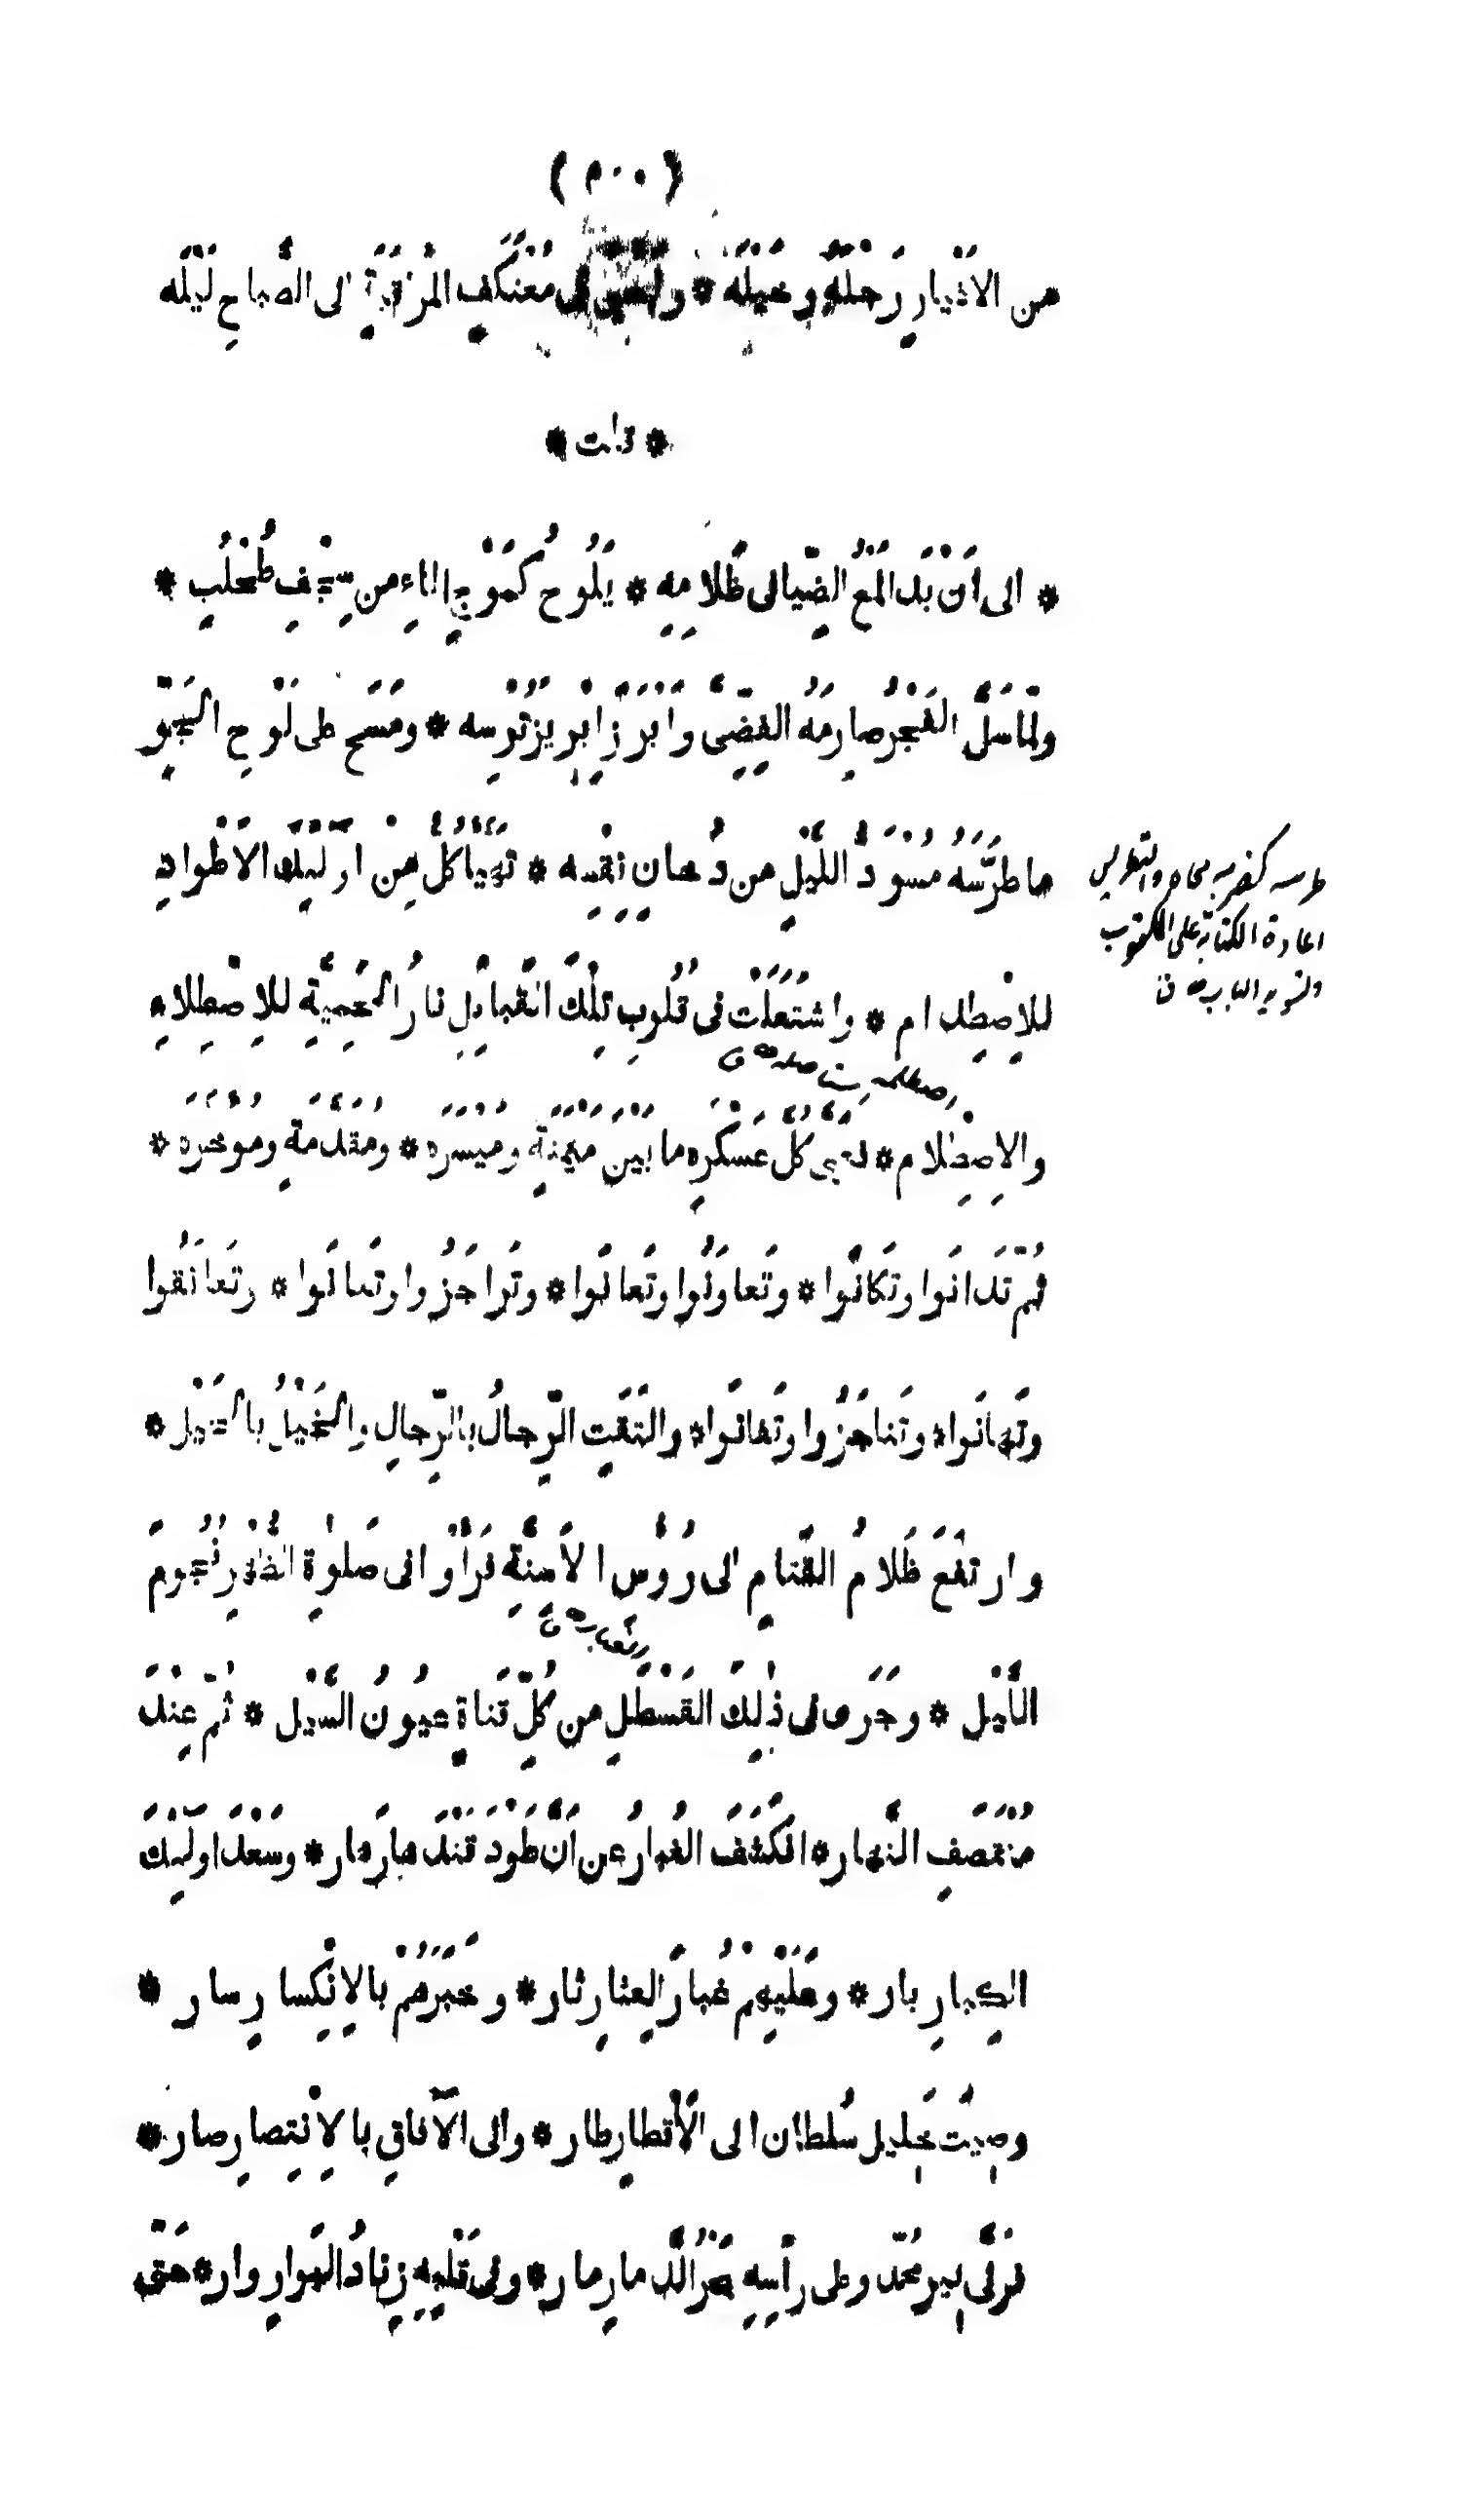 (٣٠٠)
من الاغيار رَجْلَهُ وخَيْلَه * مُعْتَكِفِ المُراقَبَةِ الى الصَّباحِ لَيْلَه
* قلت *
* الى اَنْ بَدا لَمْعُ الضِّيا فى ظَلامِهِ * يَلُوحُ كَمَوْجِ الماءِ من سِجْفِ طُحْلُبِ *
ولمّا سَلَّ الفَجْرُ صارِمَهُ الفِضِّىَّ وَاَبْرَزَ اِبْرِيزَ تُرْسِه * ومَسَحَ على لَوْحِ الجَوِّ
ما طَرَّسَهُ مُسْوَدُّ اللَّيْلِ من دُهانِ نِقْسِه * تَهَيَّأَ كُلٌّ مِنْ اُولٰئِكَ الاَطْوادِ
للاِصْطِدام * واشْتَعَلَتْ فى قُلُوبِ تِلْكَ القَبائِلِ نارُ الحَمِيَّةِ للاِصْطِلاءِ
والاِضْطِرام * فعبى كُلٌّ عَسْكَرَه ما بَيْنَ مَيْمَنَةٍ ومَيْسَرَه * ومُقَدَّمَةٍ ومُؤَخَّرَه *
ثُمّ تَدانَوا وتَكانَوا * وتَعاوَنُوا وتَعانَوا * وتَراجَزُوا وتَعانَوا * وتَعانَقُوا
وتَهانَوا * وتَناجَزُوا وتَفانَوا * والتَقَتِ الرِّجالُ بالرِّجالِ والخَيْلُ بالخَيْل *
وارتفَعَ ظَلامُ القَتامِ الى رُؤُسِ الاَسِنَّةِ فرَأَوا فى صَلٰوةِ الظُّهْرِ نُجُومَ
اللَّيْل * وجَرَى فى ذٰلِكَ القَسْطَلِ من كُلِّ قَناةٍ عيُونُ السَّيْل * ثُمّ عِنْدَ
مُنْتَصَفِ النَّهار * انْكَشَفَ الغُبارُ عن اَنَّ طَوْدَ قَنْدَهارَ هار * وسَعْدَ اولٰئِكَ
الكِبارِ بار * وعَلَيْهِمْ غُبارَ العِثارِ ثار * وخَبَرَهُمْ بالاِنْكِسارِ سار *
وصِيتَ خَلِيل سُلطان الى الاَقطارِ طار * والى الآفاقِ بالاِنْتِصارِ صار *
فوَلَّى پير محمّد وعلى رأسِهِ الدَّمارِ مار * وفى قَلْبِهِ زِنادُ البَوارِ وار * حتى
اعادة الكتابة على المكتوب